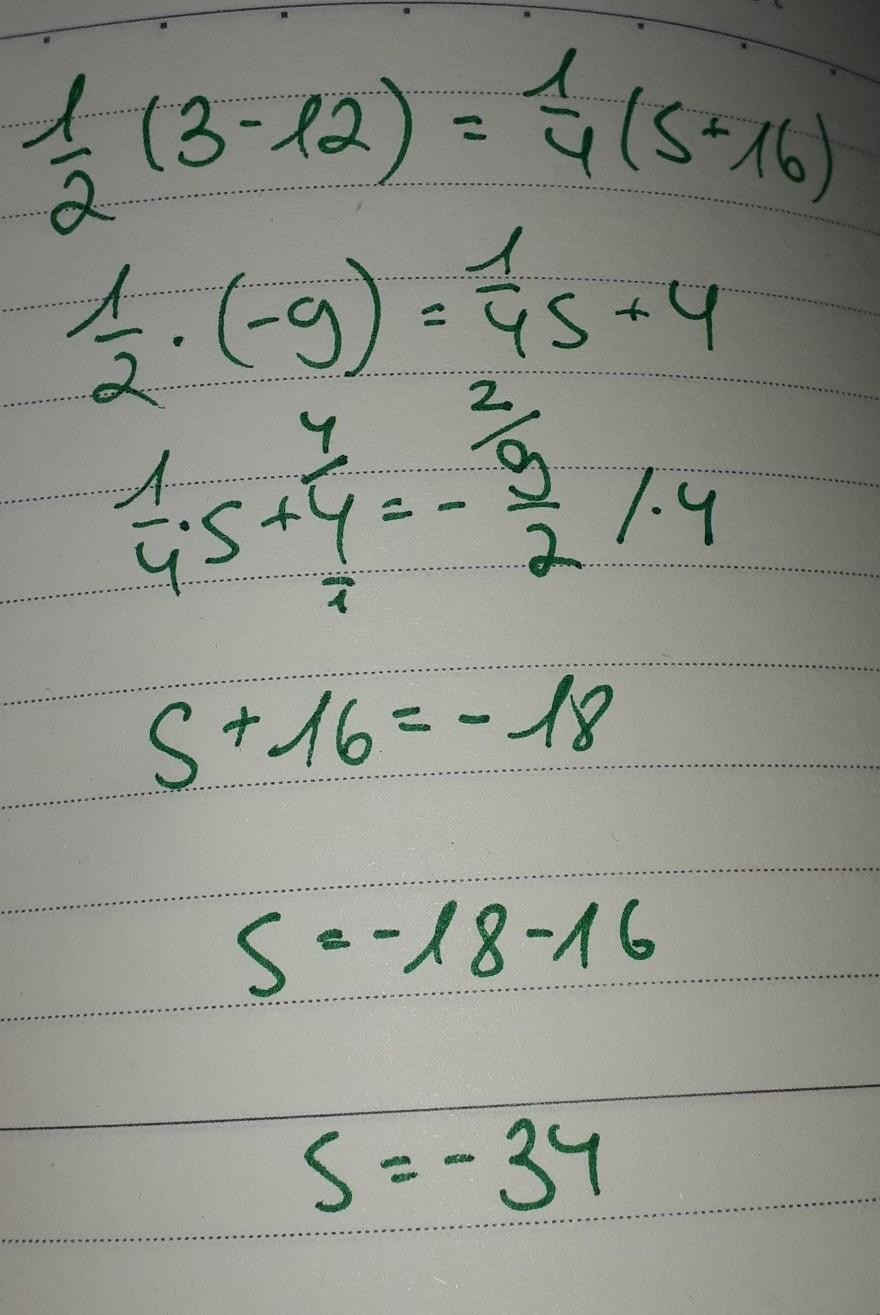 1/2 (3-12) = 1/4 (S+16)
1/2 · (-9) = 1/4 S + 4
4 2
1/4 · S + 4/1 = - 9/2 / · 4
S + 16 = - 18
S = -18 - 16
S = - 34